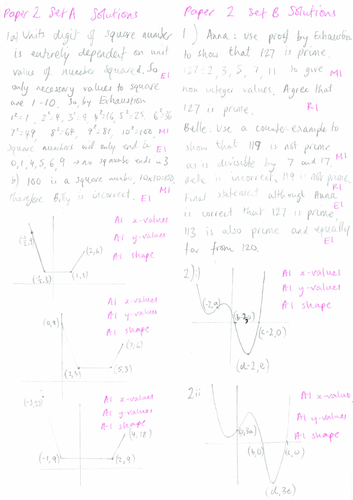 Paper 2 Set A Solutions
1a) Unit digit of square number
is entirely dependent on unit
value of number squared. So E1
only necessary values to square
are 1-10. So, by Exhaustion
1²=1, 2²=4, 3²=9, 4²=16, 5²=25, 6²=36
7²=49, 8²=64, 9²=81, 10²=100. M1
Square numbers will only end in
0,1,4,5,6,9 ∴ no square ends = 3
b) 100 is a square number, 10x10=100,
therefore Billy is incorrect. E1
A1 x-values
A1 y-values
A1 shape
(2,6)
(1,3)
(0,9)
A1 x-values
A1 y-values
A1 shape
(7,6)
(3,3)
(5,3)
A1 x-values
A1 y-values
A1 shape
(4,18)
(-1,9)
(2,9)
Paper 2 Set B Solutions
1) Anna: use proof by Exhaustion
to show that 127 is prime.
127÷2, 3, 5, 7, 11 to give M1
non integer values. Agree that
127 is prime. R1
Belle: Use a counter-example to
show that 119 is not prime
as is divisible by 7 and 17. M1
Belle is incorrect, 119 is not prime R1
Final statement although Anna
is correct that 127 is prime,
113 is also prime and equally
far from 120. E1
2)i)
A1 x-values
A1 y-values
A1 shape
(-2,a)
(b-2,0)
(c-2,0)
(d-2,e)
2ii
A1 x-values
A1 y-values
A1 shape
(0,3a)
(b,0)
(c,0)
(d,3e)